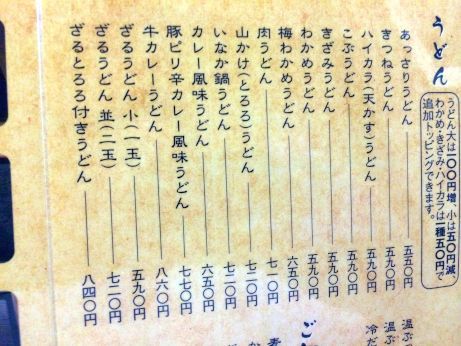 うどん
うどん大は一〇〇円増、小は五〇円減。
わかめ・きざみ・ハイカラは一種五〇円で
追加トッピングできます。
あっさりうどん 五五〇円
きつねうどん 五九〇円
ハイカラ(天かす)うどん 五九〇円
こぶうどん 五九〇円
きざみうどん 五九〇円
わかめうどん 五九〇円
梅わかめうどん 六五〇円
肉うどん 七一〇円
山かけ(とろろ)うどん 七二〇円
いなか鍋うどん 七二〇円
カレー風味うどん 六五〇円
豚ピリ辛カレー風味うどん 七七〇円
牛カレーうどん 八六〇円
ざるうどん 小(一玉) 五九〇円
ざるうどん 並(二玉) 七二〇円
ざるとろろ付きうどん 八四〇円